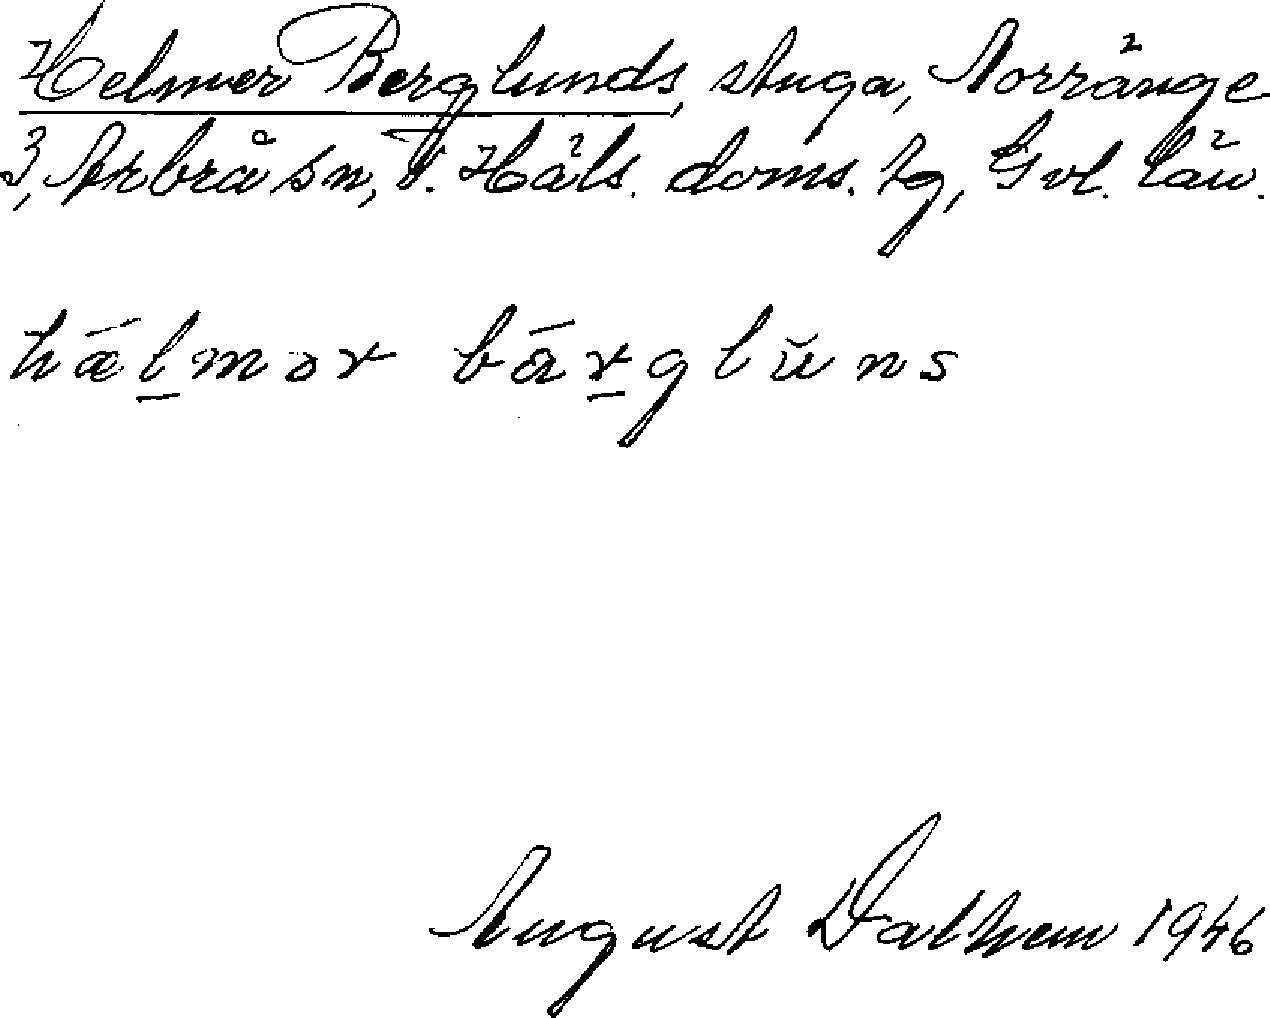 Helmer Berglunds, stuga, Norränge
3, Arbrå sn, V. Häls. doms. tg, Gvl. län.
hǽl̲mər bá̲r̲glŭns
August Dalhem 1946